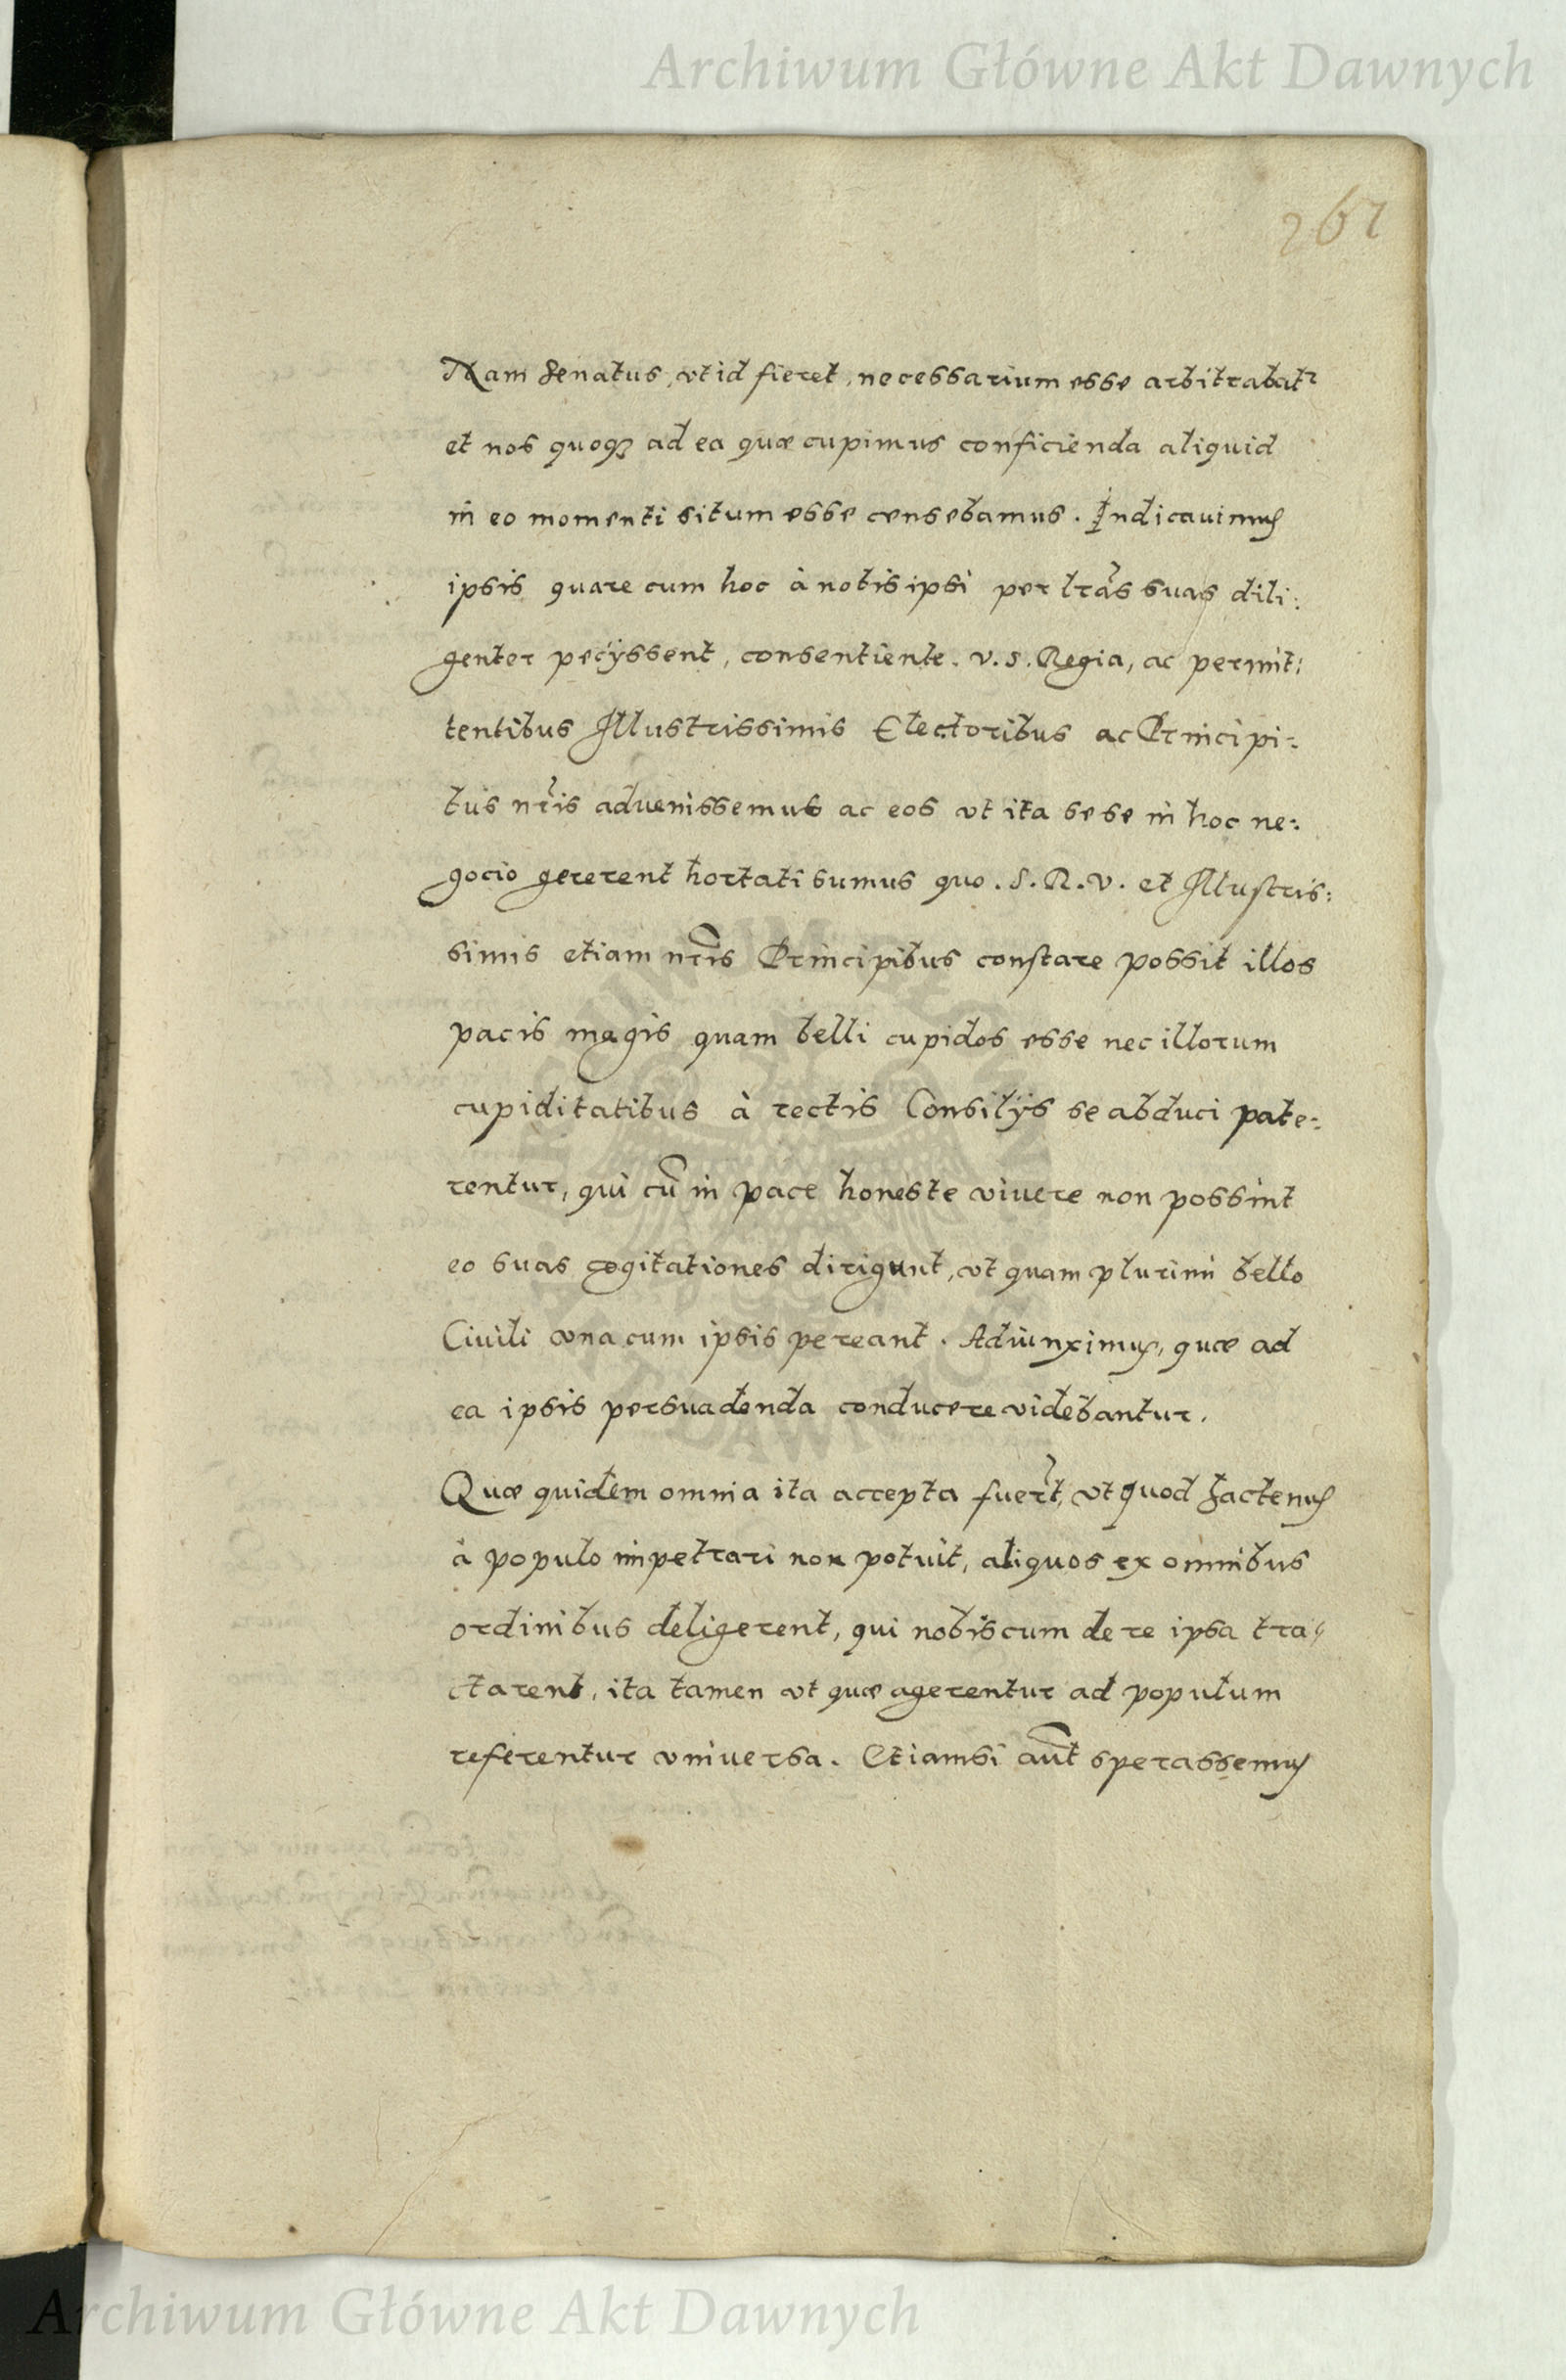 Archiwum Główne Akt Dawnych
267
Nam Senatus, vt id fieret, necessarium esse arbitrabatr
et nos quoqz ad ea quæ cupimus conficienda aliquid
in eo momenti situm esse censebamus. Indicauimus
ipsis quare cum hoc à nobis ipsi per lr̃as suas dili:
genter pecÿssent, consentiente. V. S. Regia, ac permit:
tentibus Illustrissimis Electoribus ac Principi:
bus nr̃is aduenissemus ac eos vt ita sese in hoc ne:
gocio gererent hortati sumus quo. S. R. V. et Illustris:
simis etiam nr̃is Principibus constare possit illos
pacis magis quam belli cupidos esse nec illorum
cupiditatibus à rectis Consilÿs se abduci pate:
rentur, qui cũ in pace honeste viuere non possint
eo suas cogitationes dirigunt, vt quam plurimi bello
Ciuili vna cum ipsis pereant. Adiunximus, quæ ad
ea ipsis persuadenda conducere videbantur.
Quæ quidem omnia ita accepta fuer̃t, vt quod hactenus
à populo impetrari non potuit, aliquos ex omnibus
ordinibus deligerent, qui nobiscum de re ipsa tra
ctarent, ita tamen vt quæ agerentur ad populum
referentur vniuersa. Etiamsi aut̃ sperassemus
Archiwum Główne Akt Dawnych